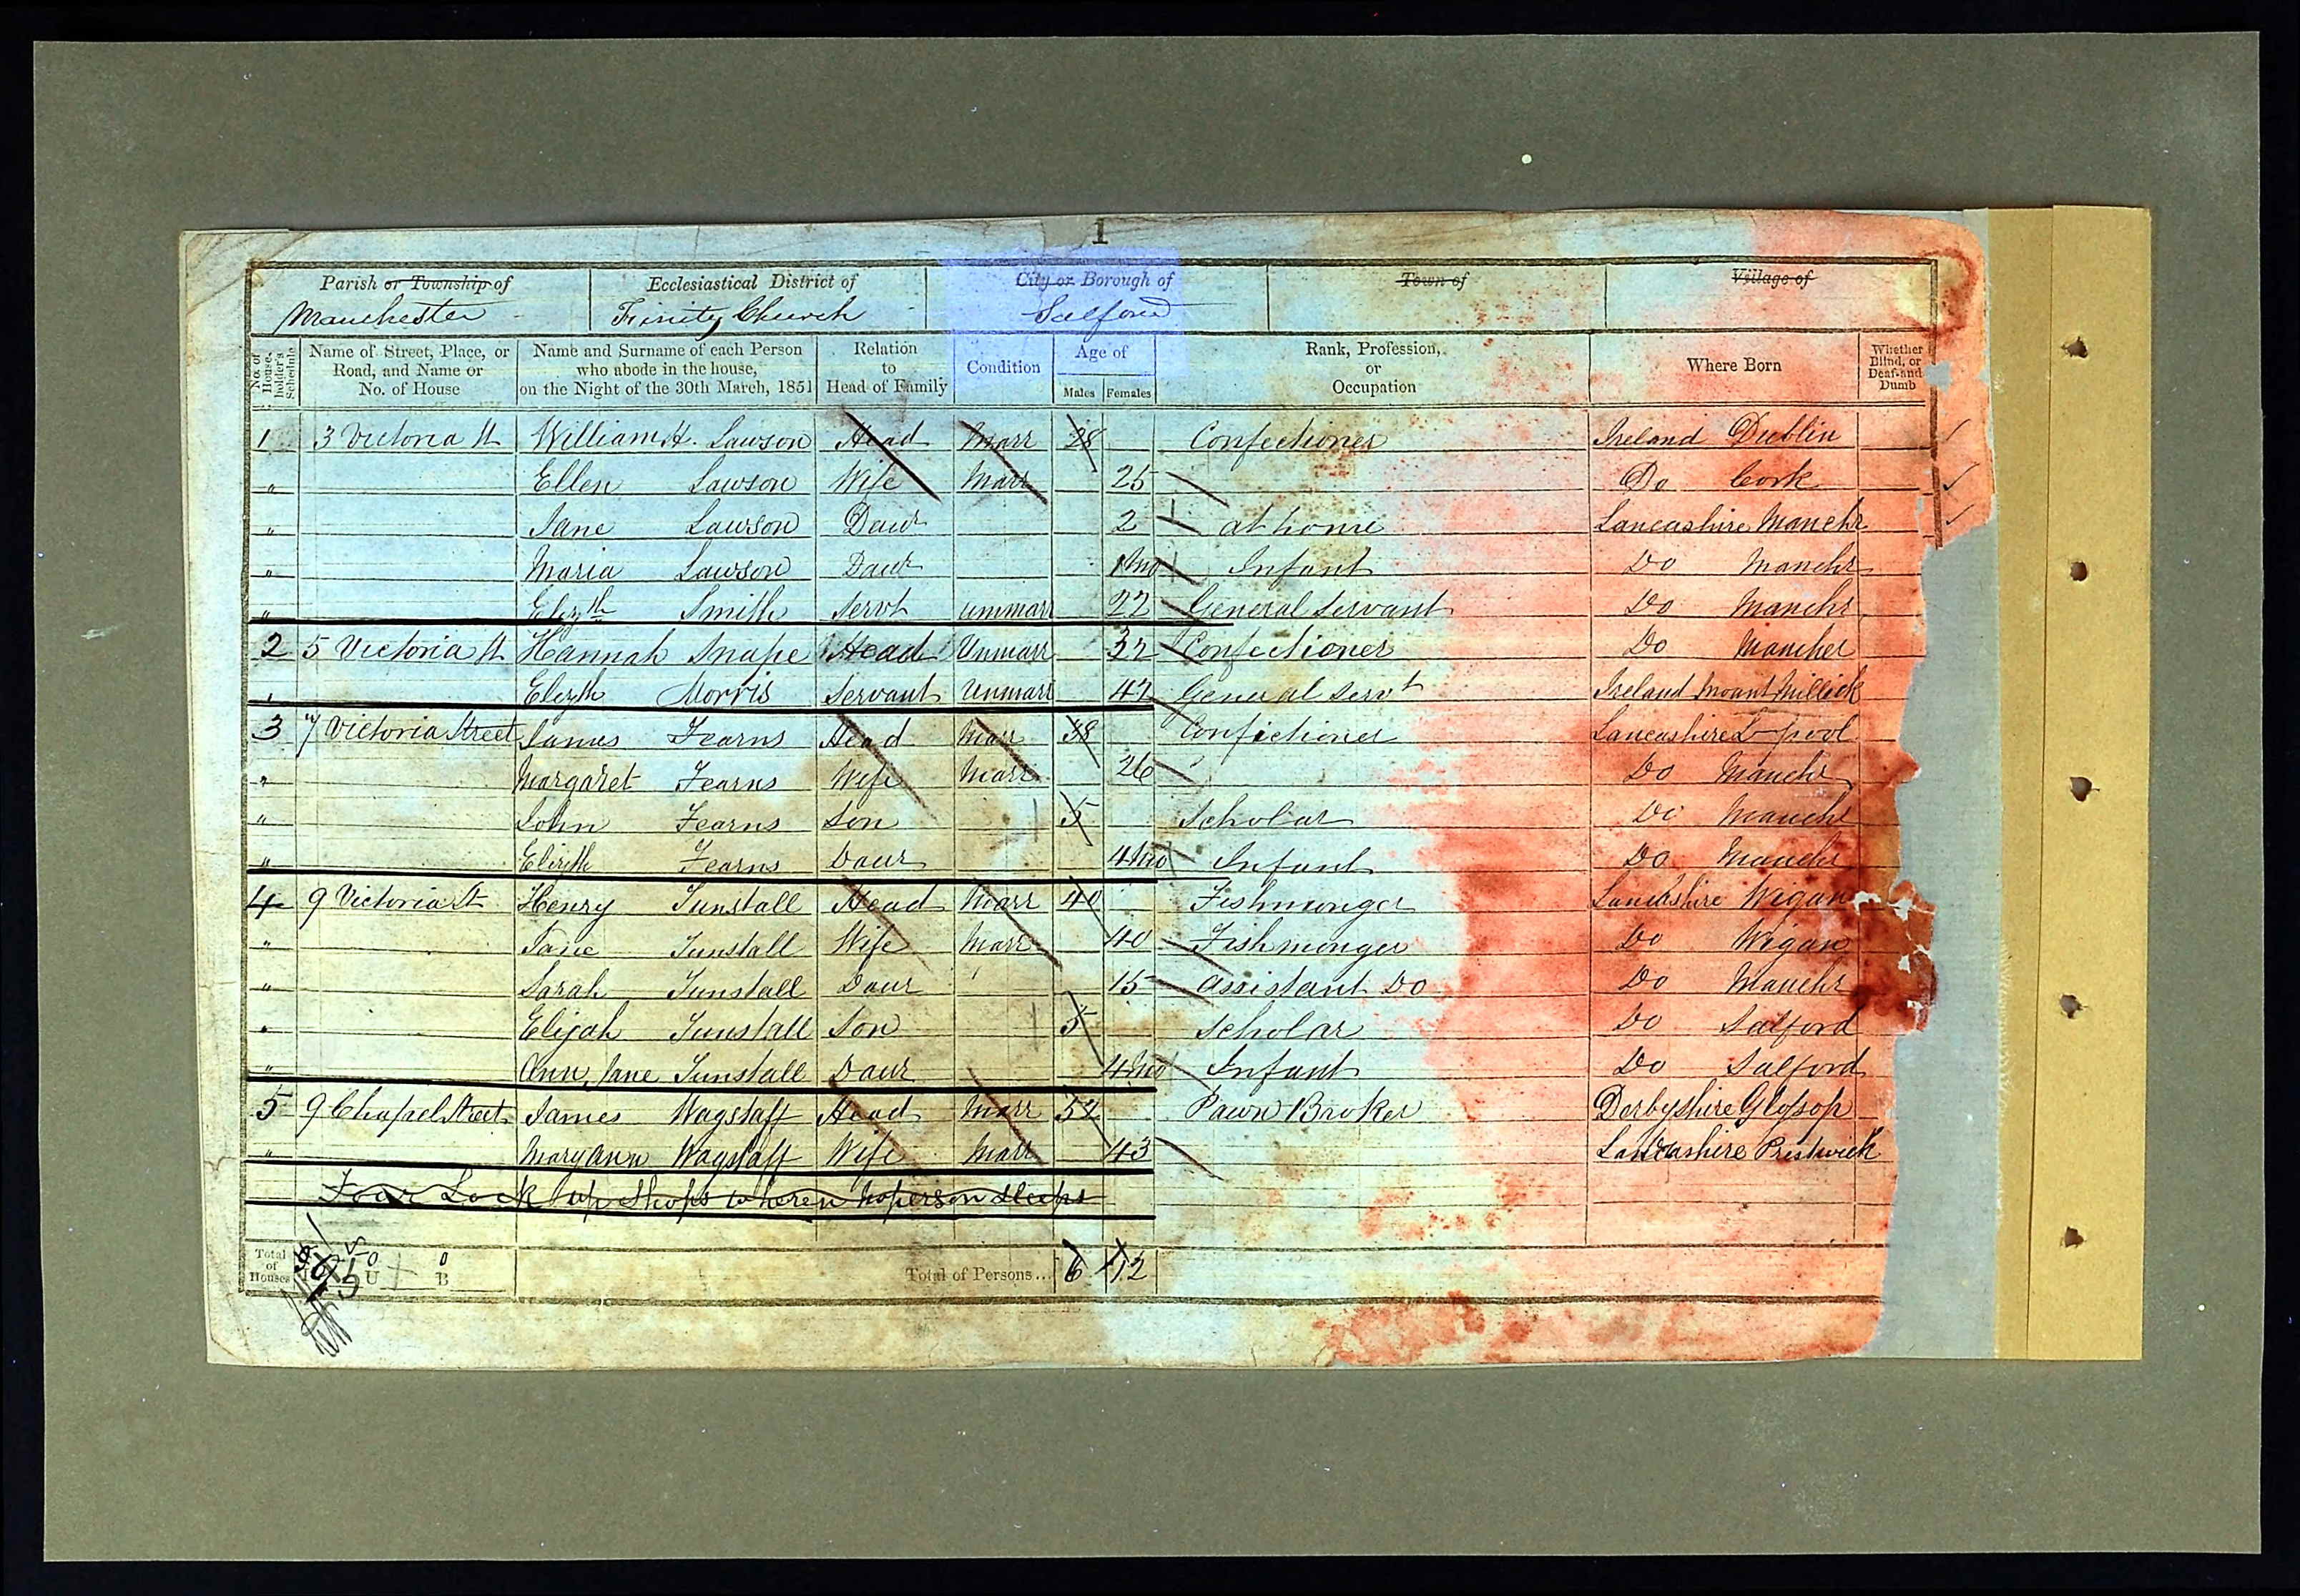 1
Parish or Township of Ecclesiastical District of City or Borough of Town of Village of
Manchester Trinity Church Salford
No. of House-holder's Schedule Name of Street, Place, or Road, and Name or No. of House Name and Surname of each Person who abode in the house, on the Night of the 30th March, 1851 Relation to Head of Family Condition Age of Males Females Rank, Profession, or Occupation Where Born Whether Blind, or Deaf-and Dumb
1 3 Victoria St William H. Lawson Head Marr 28 Confectioner Ireland Dublin
" Ellen Lawson Wife Marr 25 Do Cork
" Jane Lawson Daur 2 at home Lancashire Manchr
" Maria Lawson Daur 1 Mo Infant Do Manchr
" Elizth Smith Servt Unmarr 22 General Servant Do Manchr
2 5 Victoria St Hannah Snape Head Unmarr 32 Confectioner Do Mancher
" Elizth Morris Servant Unmarr 42 General Servt Ireland Mount Millick
3 7 Victoria Street James Fearns Head Marr 38 Confictioner Lancashire L-pool
" Margaret Fearns Wife Marr 26 Do Manchr
" John Fearns Son 5 Scholar Do Manchr
" Elizth Fearns Daur 4 Mo Infant Do Manchr
4 9 Victoria St Henry Tunstall Head Marr 40 Fishmonger Lancashire Wigan
" Jane Tunstall Wife Marr 40 Fishmonger Do Wigan
" Sarah Tunstall Daur 15 Assistant Do Do Manchr
" Elijah Tunstall Son 5 Scholar Do Salford
" Ann Jane Tunstall Daur 4 Mo Infant Do Salford
5 9 Chapel Street James Wagstaff Head Marr 52 Pawn Broker Derbyshire Glossop
" Mary Ann Wagstaff Wife Marr 43 Lancashire Prestwich
Four Lock up Shops wherein no person sleeps
Total of Houses 5 U 0 B 0 Total of Persons... 6 12